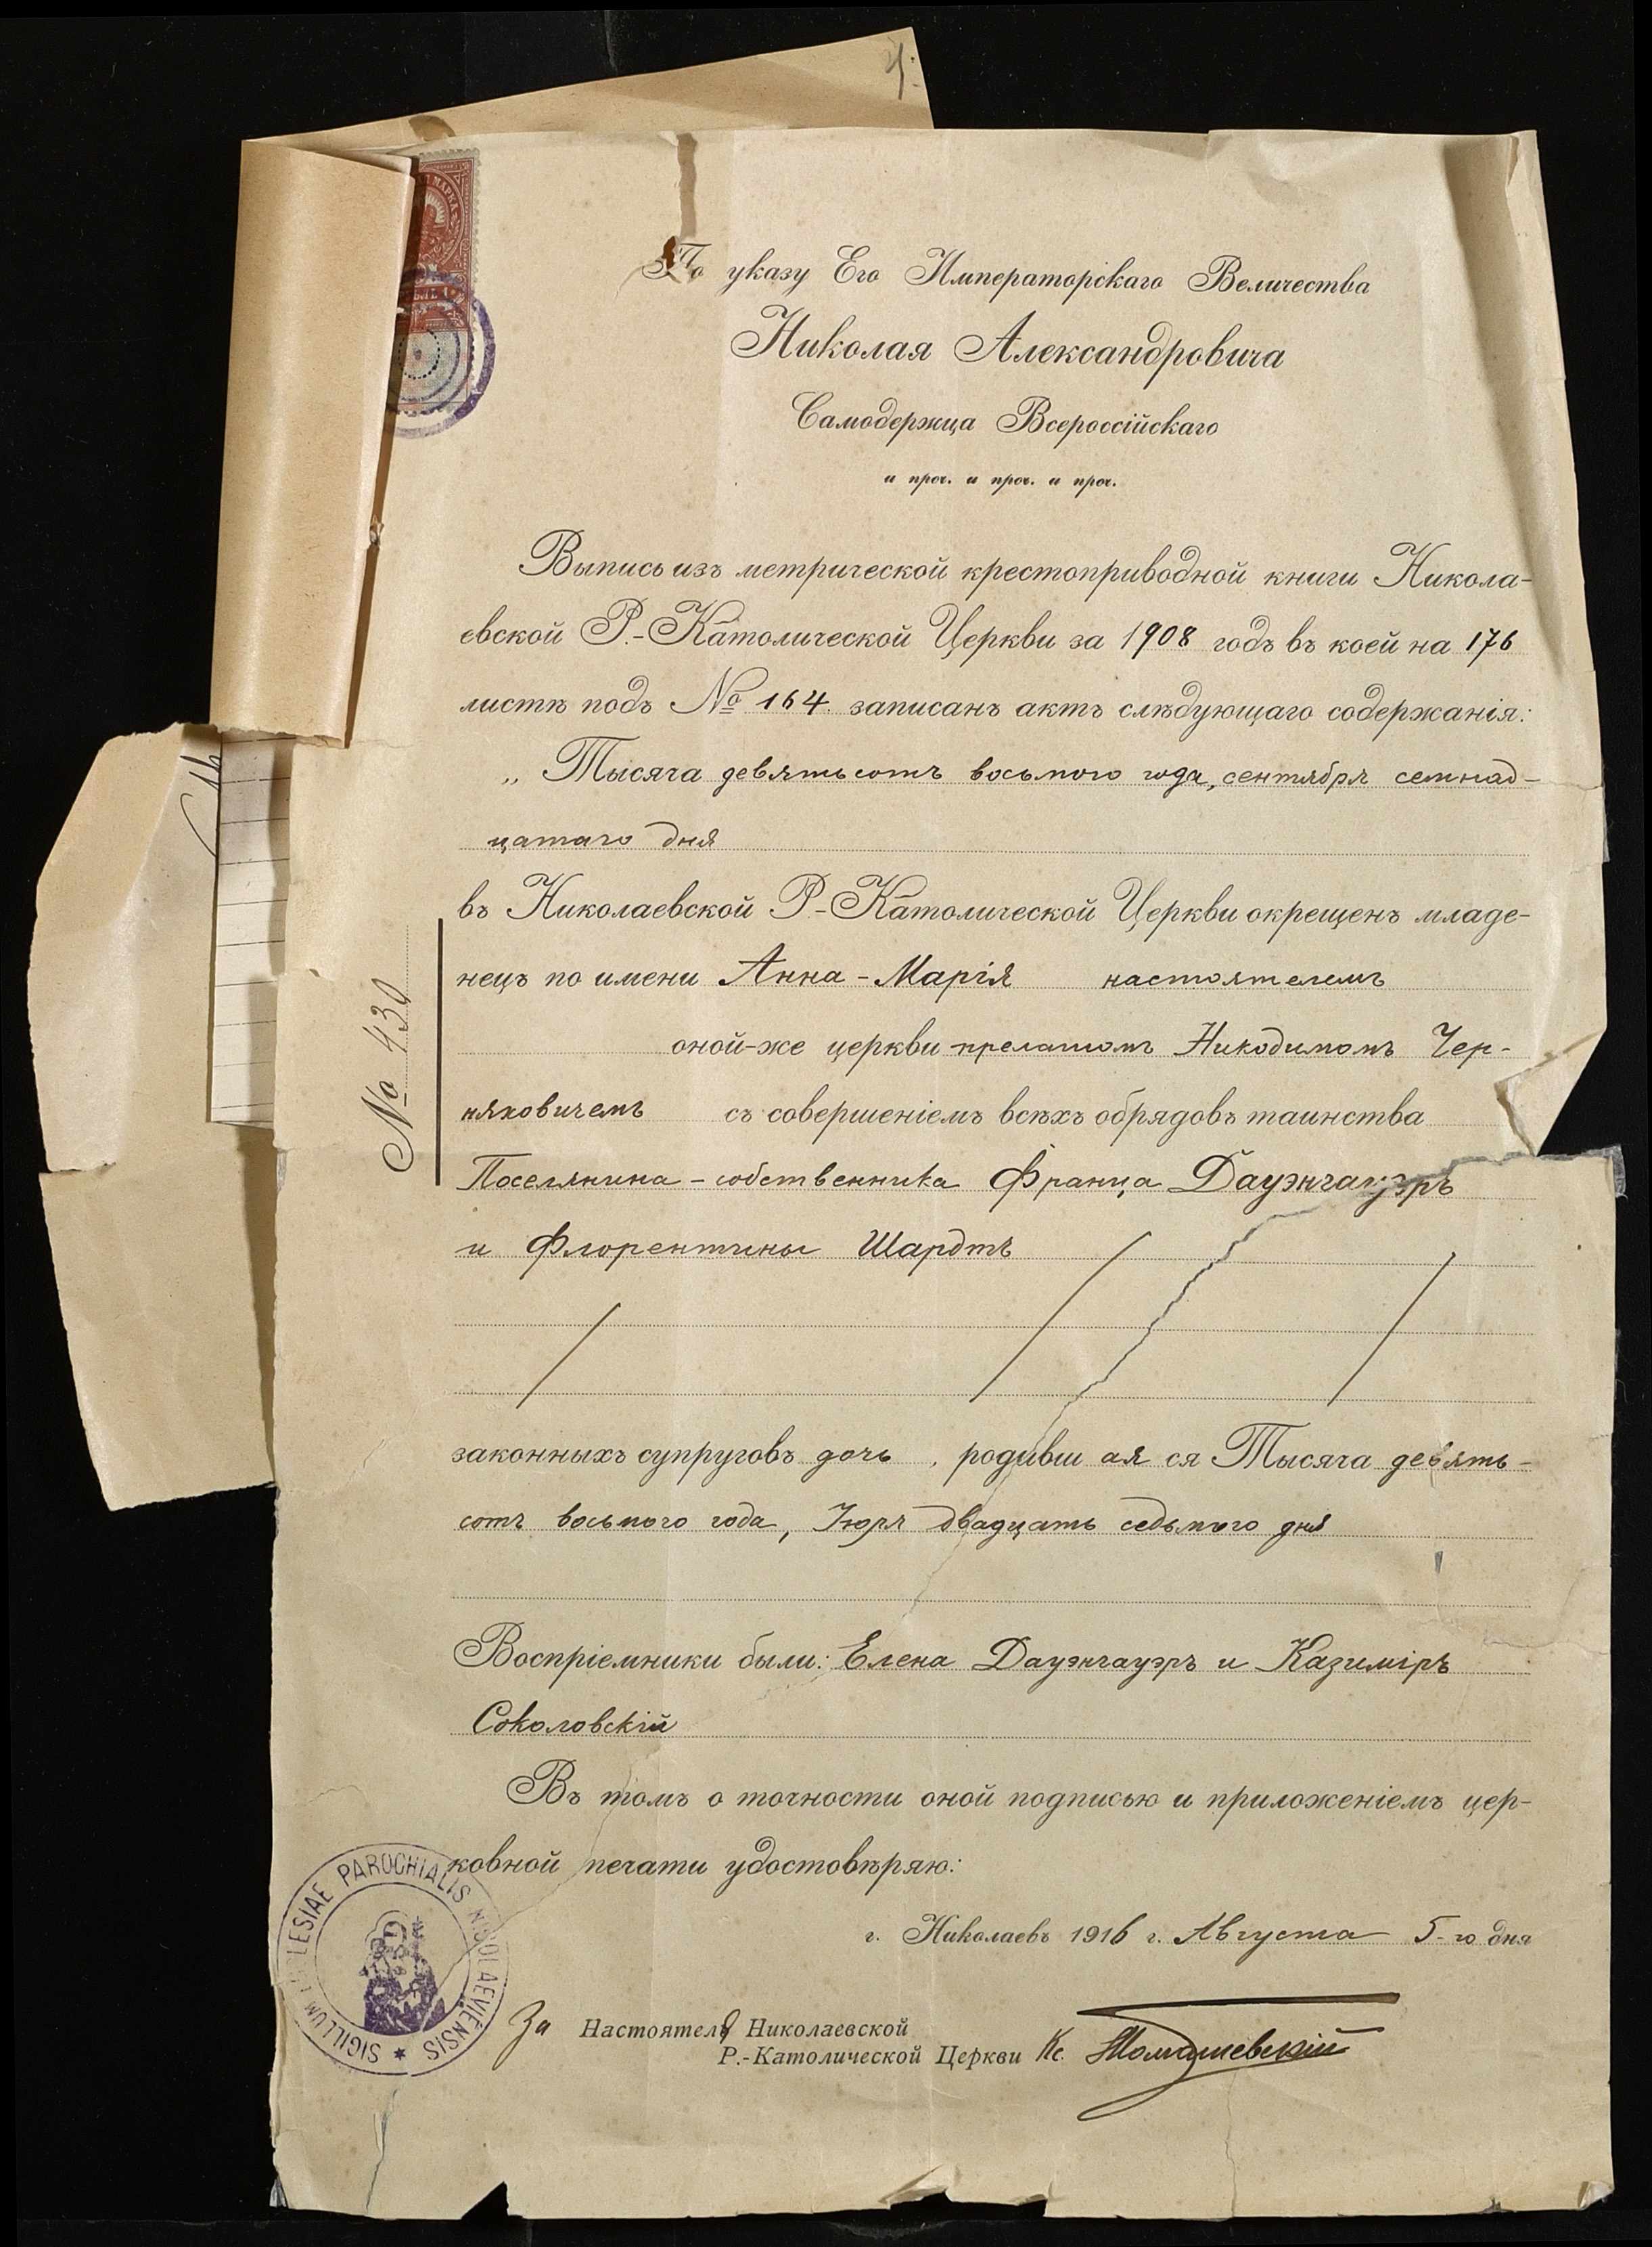 По указу Его Императорскаго Величества
Николая Александровича
Самодержца Всероссійскаго
и проч. и проч. и проч.
Выпись изъ метрической крестоприводной книги Никола-
евской Р.-Католической Церкви за 1908 годъ въ коей на 176
листѣ подъ № 164 записанъ актъ слѣдующаго содержанія:
„ Тысяча девятьсотъ восьмого года, сентября семнад-
цатаго дня
въ Николаевской Р-Католической Церкви окрещенъ младе-
нецъ по имени Анна-Марія настоятелемъ
оной-же церкви прелатомъ Никодимомъ Чер-
няховичемъ съ совершеніемъ всѣхъ обрядовъ таинства
Поселянина-собственника Франца Дауэнгауэръ
и Флорентины Шардтъ
законныхъ супруговъ дочь , родивш ая ся Тысяча девять-
сотъ восьмого года, двадцать седьмого дня
Воспріемники были: Елена Дауэнгауэръ и Казиміръ
Соколовскій
Въ томъ о точности оной подписью и приложеніемъ цер-
ковной печати удостовѣряю:
г. Николаевъ 1916 г. Августа 5-го дня
За Настоятеля Николаевской
Р.-Католической Церкви Кс. Томашевскій
№ 430
SIGILLUM ECCLESIAE PAROCHIALIS NICOLAEVIENSIS
МАРКА